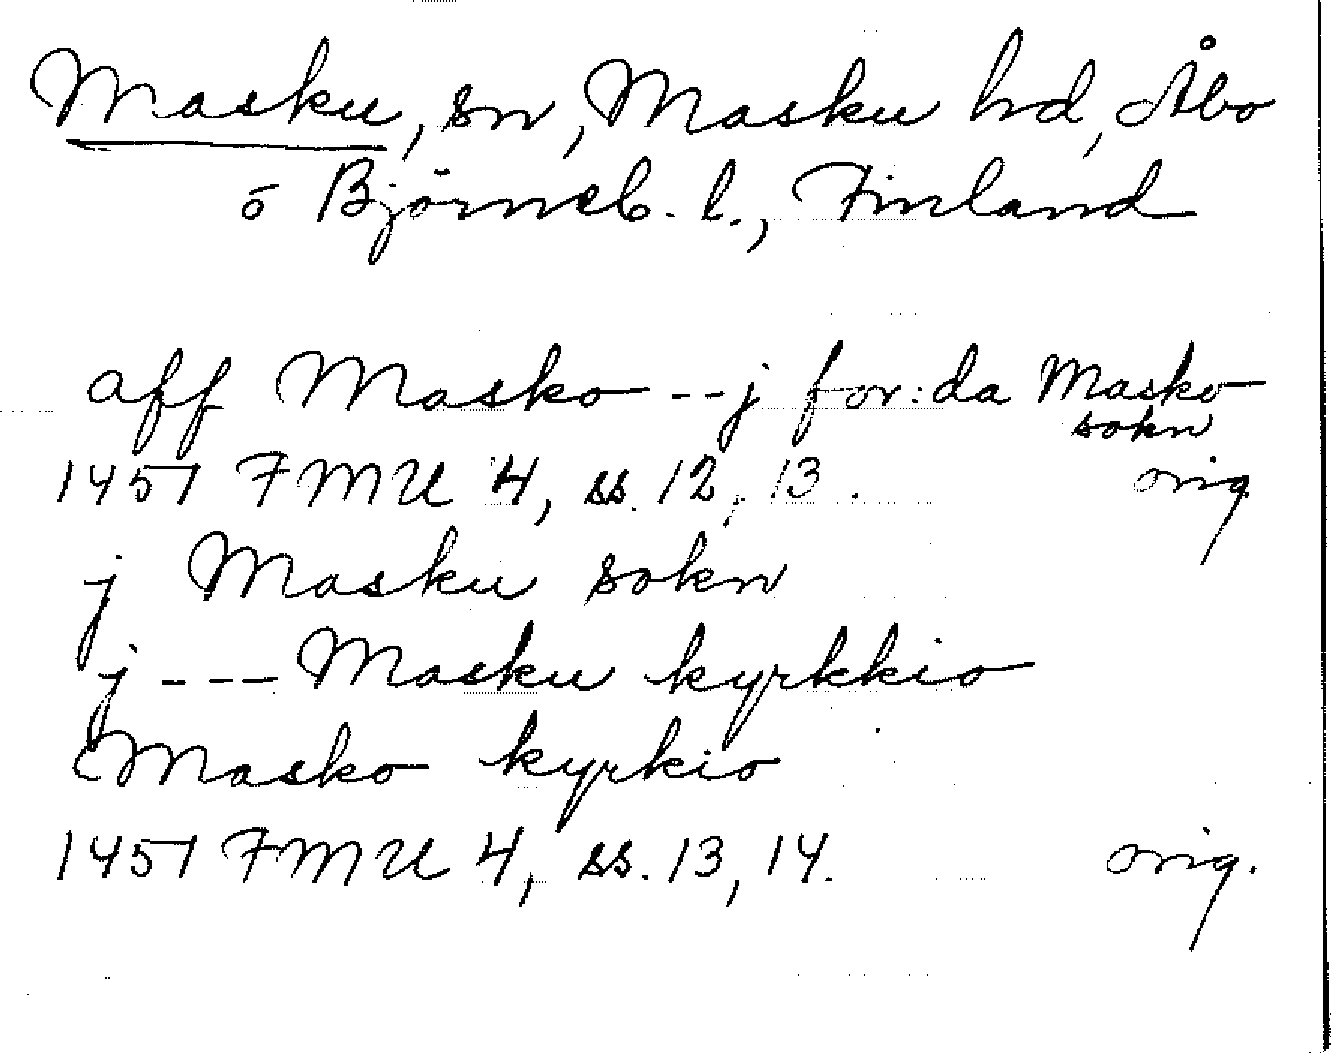 Masku, sn, Masku hd, Åbo
o Björneb. l., Finland
aff Masko --j for:da Masko
sokn
1451 FMU 4, ss. 12, 13. orig
j Masku sokn
j --- Masku kyrkkio
Masko kyrkio
1451 FMU 4, ss. 13, 14. orig.